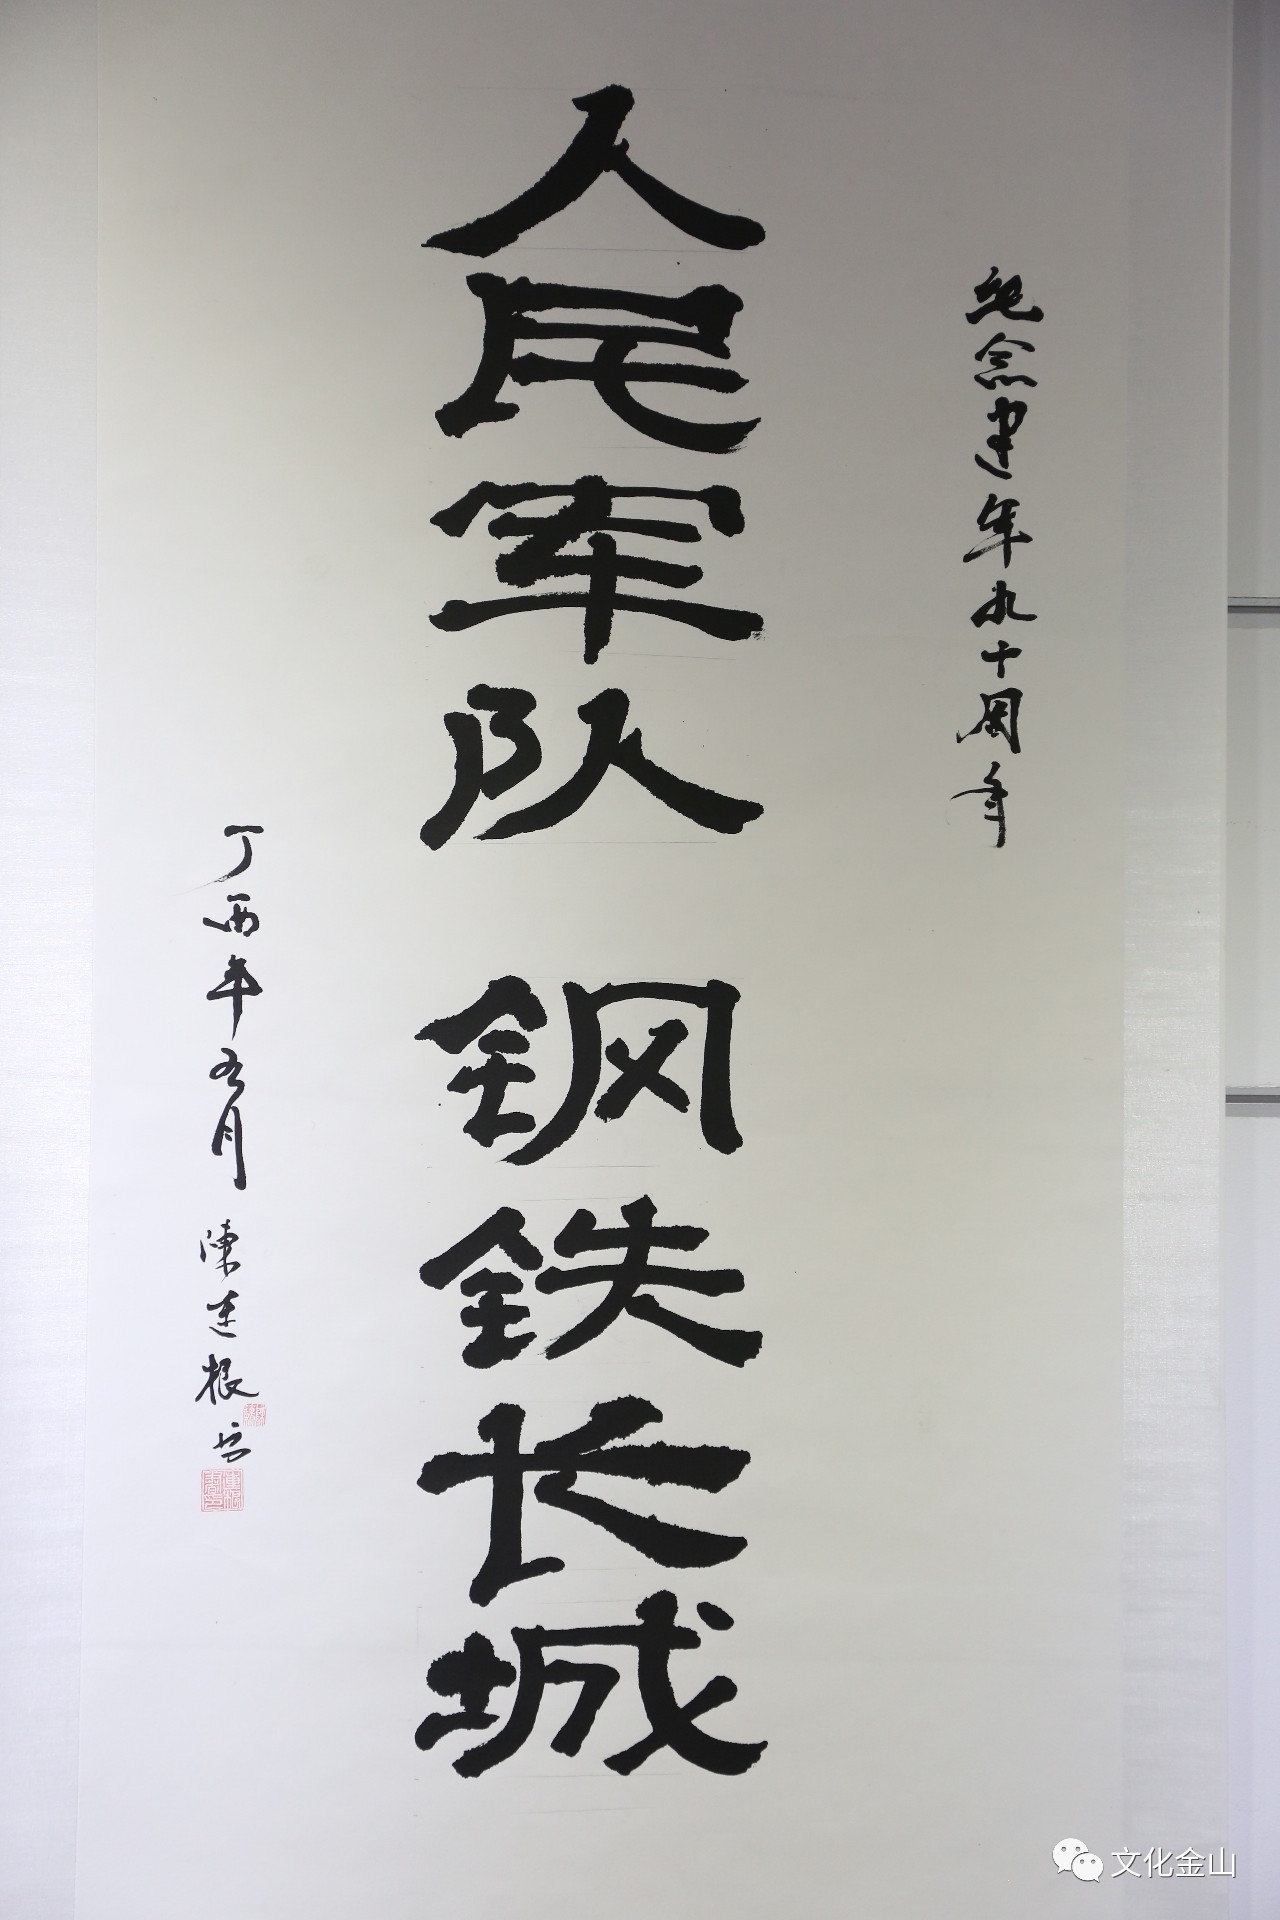 纪念建军九十周年
人民军队 钢铁长城
丁酉年五月 陳连根书
文化金山